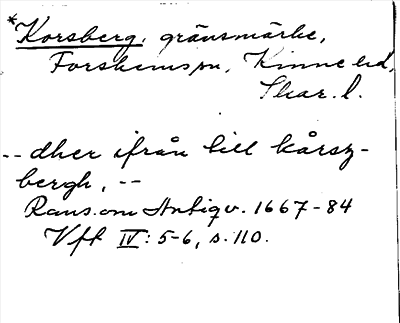 *Korsberg, gränsmärke,
Forshems sn, Kinne hd,
Skar. l.
-- dher ifrån till kårsz-
bergh, --
Rans. om Antiqv. 1667-84
Vft IV: 5-6, s. 110.